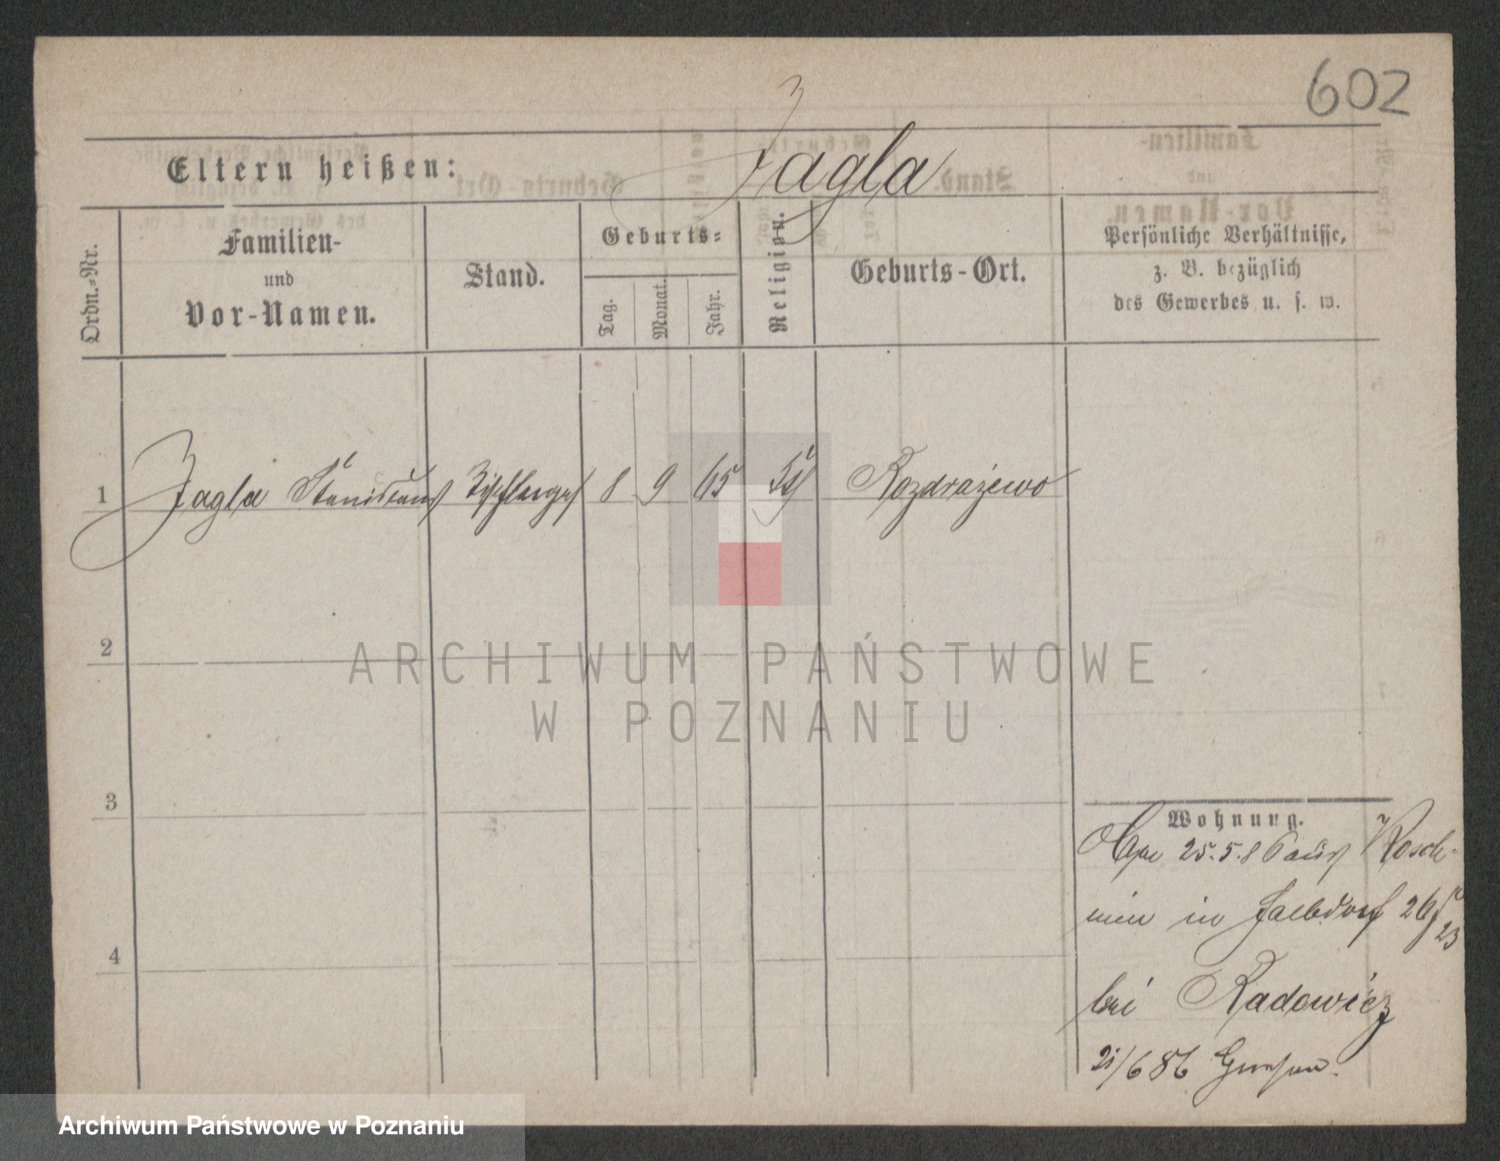 602
Eltern heißen: Jagla
Ordn.-Nr.
Familien-
und
Vor-Namen.
Stand.
Geburts-
Tag.
Monat.
Jahr.
Religion.
Geburts-Ort.
Persönliche Verhältnisse,
z. B. bezüglich
des Gewerbes u. s. w.
1 Jagla Stanislaus 8 9 65 Rozdrażewo
2
3
4
Wohnung.
25.5.86 aus Kosch-
min in
bei Radowicz
21/6 86 Gnesen.
ARCHIWUM PAŃSTWOWE
W POZNANIU
Archiwum Państwowe w Poznaniu